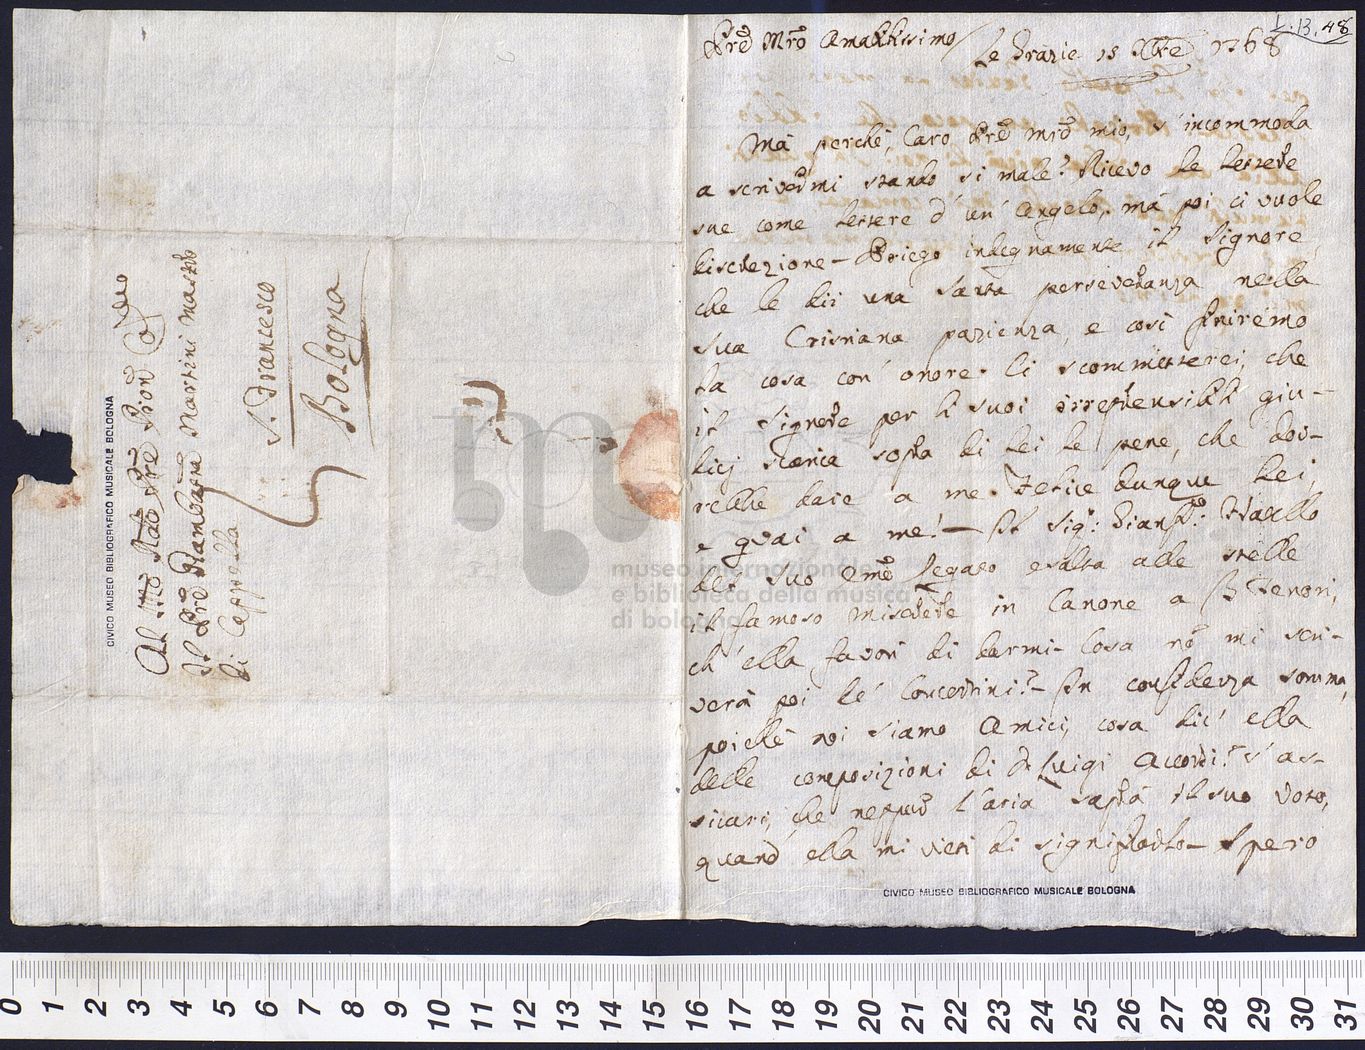 I.13.48
Prē Mrō Amatissimo
Le Grazie 15 1768
Mà perchè, Caro Prē mrō mio, s'incommoda
a scrivermi stando sì male? Ricevo le lettere
sue come lettere d'un' Angelo, mà poi ci vuole
discrezione – Priego indegnamente il Signore,
che le dii una santa perseveranza nella
sua Cristiana pazienza, e così finiremo
la cosa con' onore. Ci scommetterei, che
il Signore per li suoi irreprensibili giu-
dicj scarica sopra di lei le pene, che dov-
rebbe dare a me. Felice dunque lei,
e guai a me! – Il Sig.
del suo Legato esalta alle stelle
il famoso Miserere in Canone a
ch'ella favorì di darmi – Cosa nō mi scri-
verà poi de' Concertini? – In confidenza somma,
poichè noi siamo Amici, cosa dic' ella
delle composizioni di D. Luigi Accordi? S'as-
sicuri, che neppur l'aria saprà il suo voto,
quand' ella mi vieti di significarlo – Spero
CIVICO MUSEO BIBLIOGRAFICO MUSICALE BOLOGNA
Al
Il Prē Giambatta Martini Mastro
di Cappella
S. Francesco
Bologna
CIVICO MUSEO BIBLIOGRAFICO MUSICALE BOLOGNA
museo internazionale
e biblioteca della musica
di bologna
0 1 2 3 4 5 6 7 8 9 10 11 12 13 14 15 16 17 18 19 20 21 22 23 24 25 26 27 28 29 30 31